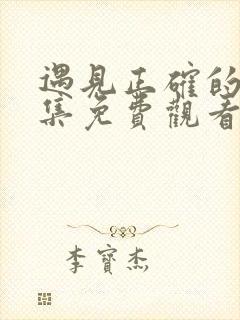 遇見正確的
集免費觀看
李寶杰